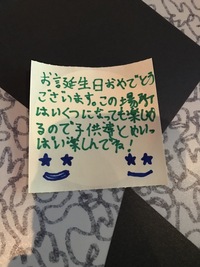 お誕生日おめでとう
ございます。この場所
はいくつになっても楽しめ
るので子供達とめいっ
ぱい楽しんでね!